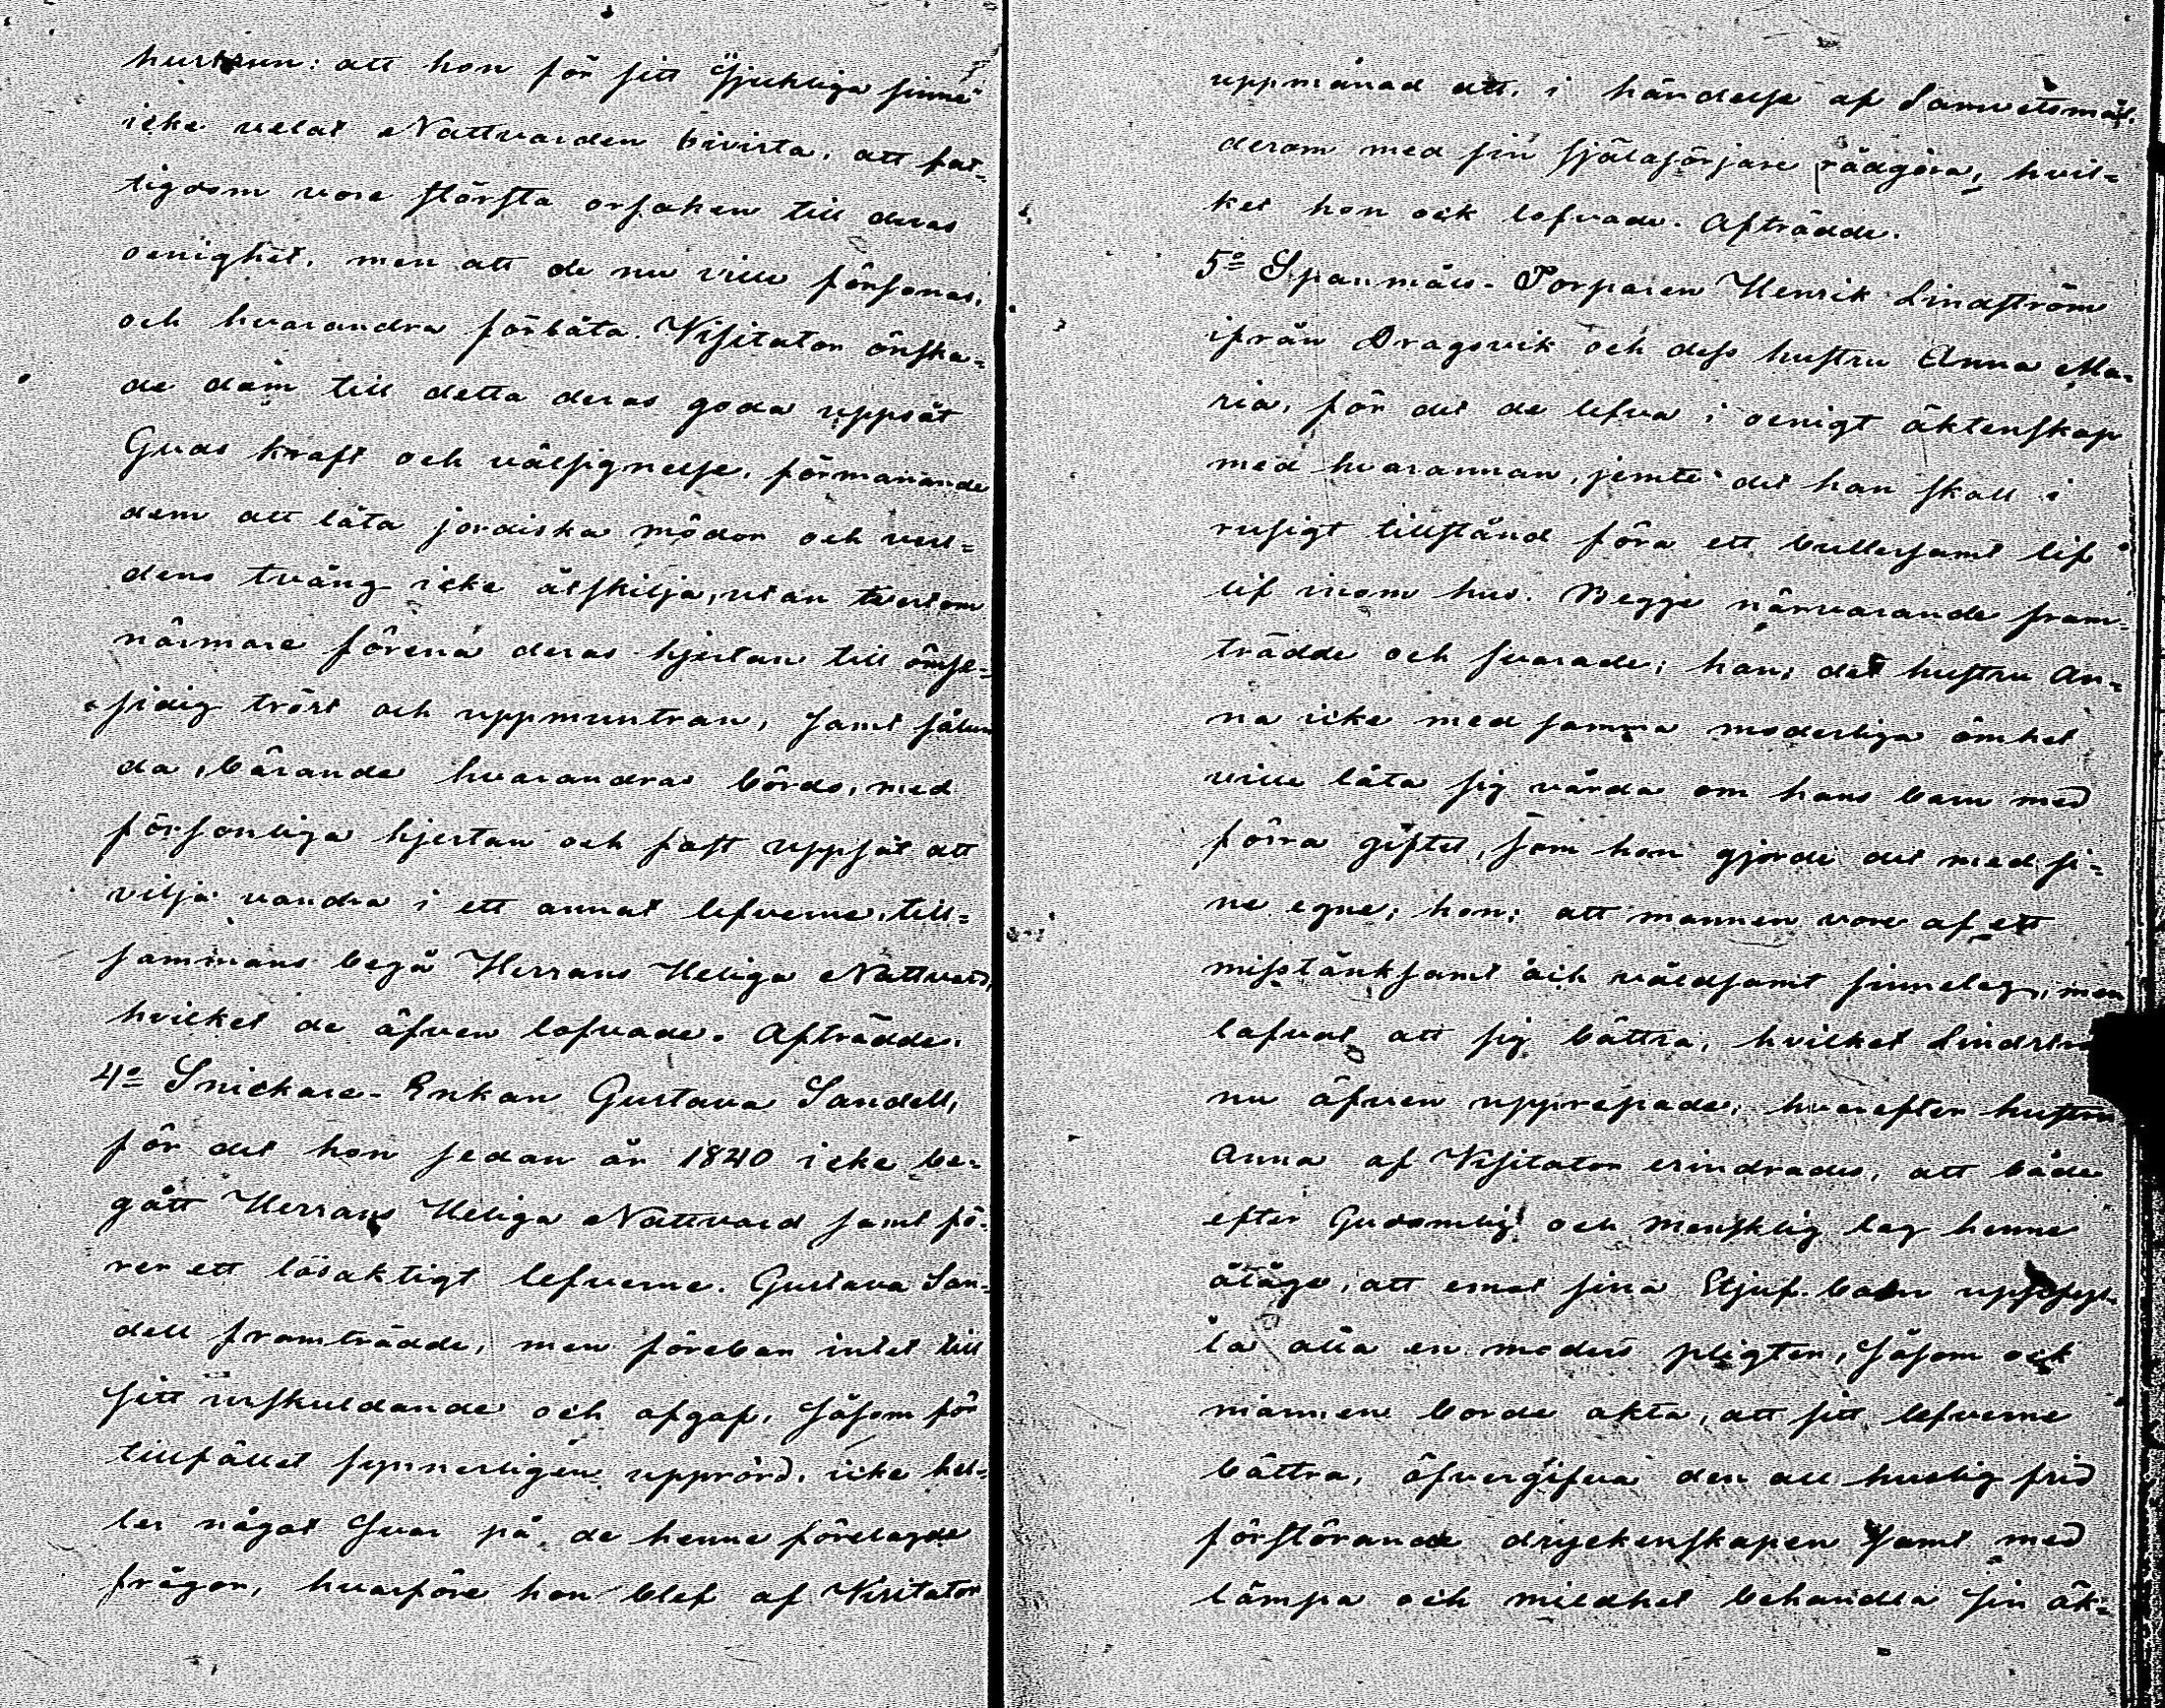 hustrun: att hon för sitt "sjukliga sinne"
icke velat Nattvarden bivista, att fat-
tigdom vore största orsaken till deras
oenighet, men att de nu ville försonas,
och hvarandra förlåta. Visitator önska-
de dem till detta deras goda uppsåt
Guds kraft och välsignelse, förmanande
dem att låta jordiska mödor och verl-
dens tvång icke åtskilja, utan tvertom
närmare förena deras hjertan till ömse-
sidig tröst och uppmuntran, samt sålun
da, bärande hvarandras börds, med
försonliga hjertan och fast uppsåt att
vilja vandra i ett annat lefverne, till-
sammans begå Herrans Heliga Nattvard,
hvilket de äfven lofvade. Afträdde.
4º Snickare-Enkan Gustava Sandell,
för det hon sedan år 1840 icke be-
gått Herrans Heliga Nattvard samt fö-
rer ett lösaktigt lefverne. Gustava San-
dell framträdde, men förebar intet till
sitt urskuldande och afgaf, såsom för
tillfället synnerligen upprörd, icke hel-
ler något svar på de henne förelagde
frågor, hvarföre hon blef af Visitator
uppmanad att, i händelse af Samvetsmål,
derom med sin själasörjare rådgöra, hvil-
ket hon ock lofvade. Afträdde.
5º Spanmåls-Torparen Henrik Lindström
ifrån Dragsvik och dess hustru Anna Ma-
ria, för det de lefva i oenigt äktenskap
med hvarannan, jemte det han skall i
rusigt tillstånd föra ett bullersamt lif
lif inom hus. Begge närvarande fram-
trädde och svarade; han: det hustru An-
na icke med samma moderliga ömhet
ville låta sig vårda om hans barn med
förra giftet, som hon gjorde det med si-
ne egne; hon: att mannen vore af ett
misstänksamt och våldsamt sinnelag, men
lofvat att sig bättra, hvilket
nu äfven upprepade, hvarefter hustru
Anna af Visitator erindrades, att både
efter Gudomlig och Mensklig lag henne
åläge, att emot sina Stjuf-barn uppfyl-
la alla en moders pligter, såsom ock
mannen borde akta, att sitt lefverne
bättra, öfvergifva den all huslig frid
förstörande dryckenskapen samt med
lämpa och mildhet behandla sin äk-